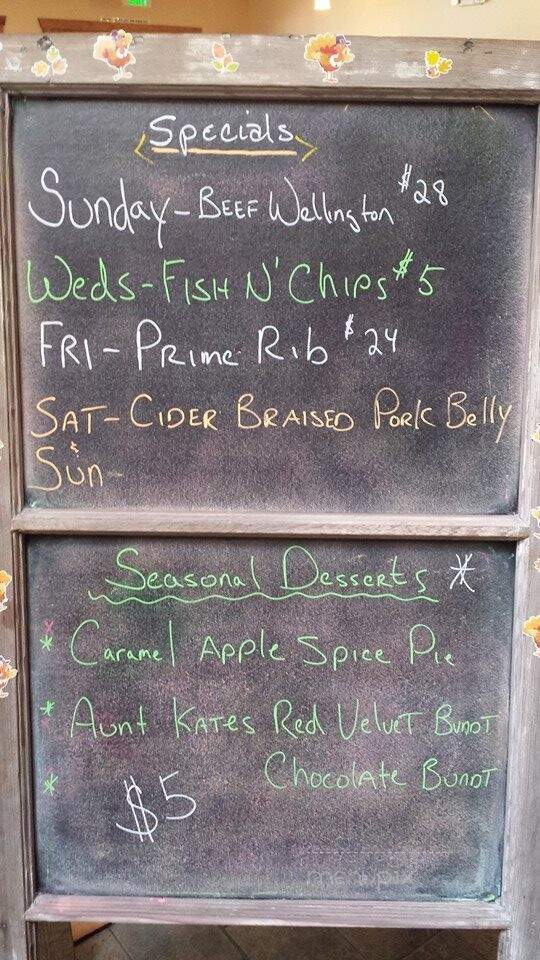 Specials
Sunday - BEEF Wellington $28
Weds - FISH N' CHIPS $5
FRI - PRIME RIB $24
SAT - CIDER BRAISED PORK Belly
& Sun -
Seasonal Desserts *
* Caramel APPle Spice Pie
* Aunt KATES Red VelveT BUNDT
* Chocolate BUNDT
$5
menupix